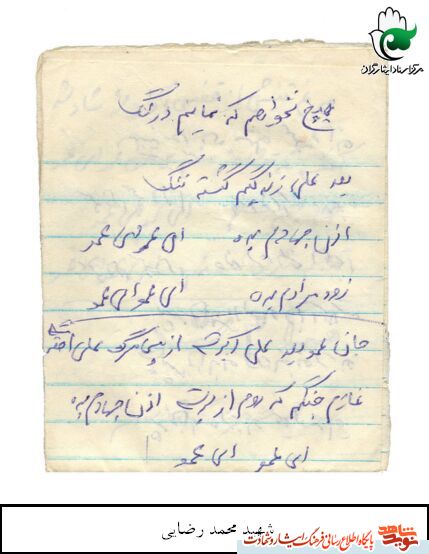 مرکز اسناد ایثارگران
هیچ نخواهم که نمایم درنگ
بعد علی زندگیم گشته ننگ
اذن جهادم بده ای عمو ای عمو
زود مرادم بده ای عمو ای عمو
جان عمو بعد علی اکبرت از پس مرگ علی اصغرت
عازم جنگم که روم از برت اذن جهادم بده
ای عمو ای عمو
شهید محمد رضایی
نوید شاهد
پایگاه اطلاع رسانی فرهنگ ایثار و شهادت